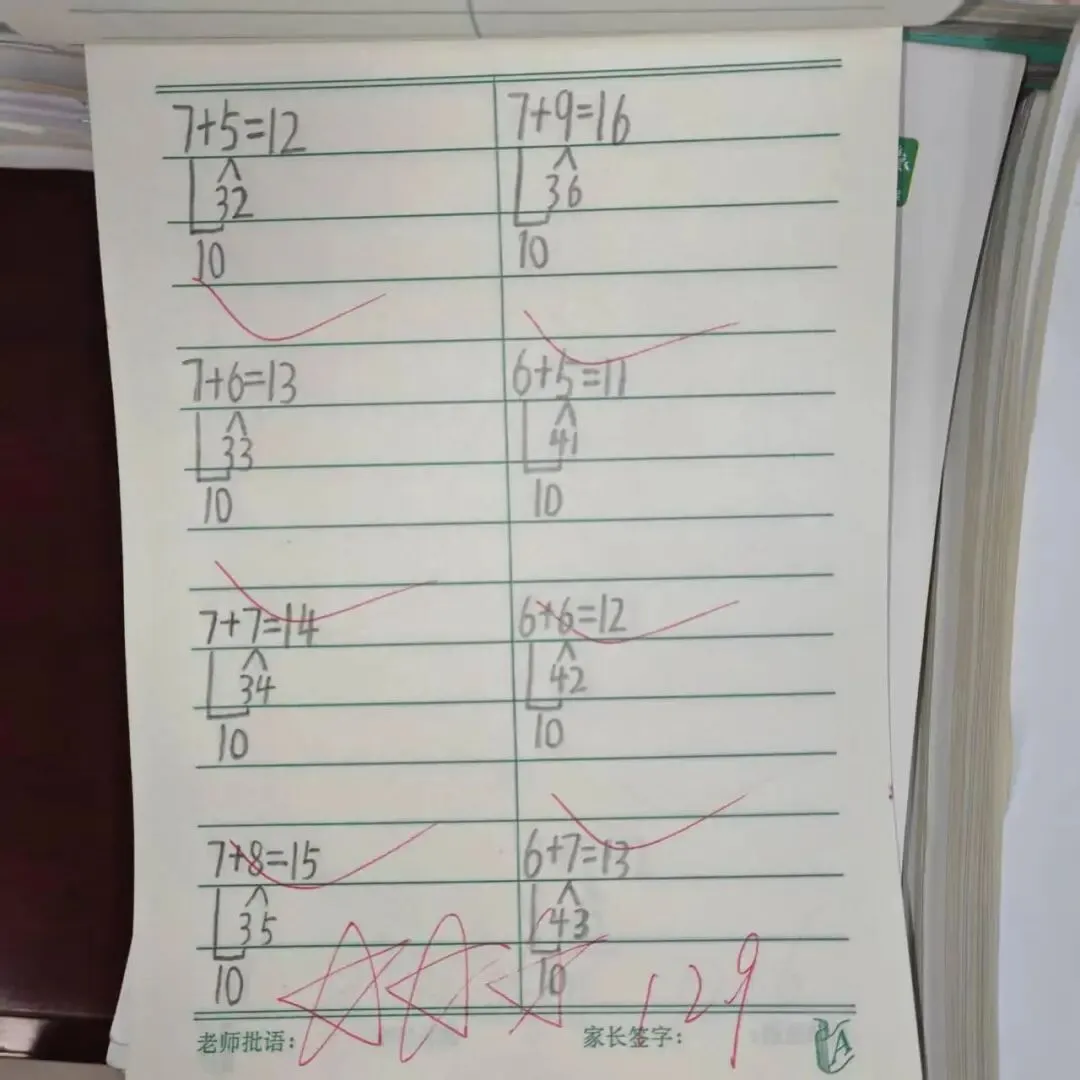 7+5=12
32
10
7+9=16
36
10
7+6=13
33
10
6+5=11
41
10
7+7=14
34
10
6+6=12
42
10
7+8=15
35
10
6+7=13
43
10
129
老师批语:
家长签字:
A